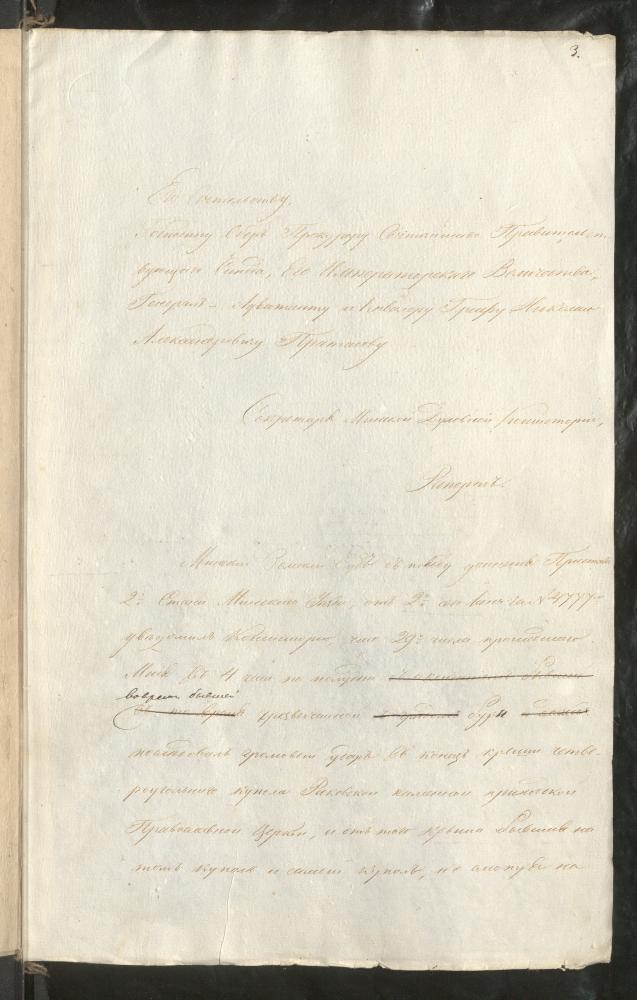 3.
Его Сіятельству,
Господину Оберъ Прокурору Святѣйшаго Правительст-
вующаго Синода, Его Императорскаго Величества,
Генералъ-Адъютанту и Кавалеру Графу Николаю
Александровичу Пратасову
Секретаря Минской Духовной Консисторіи,
Рапортъ.
Минскій Земскій Судъ въ поводу донесенія Пристава
2го Стана Минскаго Уѣзда, отъ 2го сего Іюня за № 4777мъ
увѣдомилъ Консисторію, что 29го числа прошедшаго
Мая въ 4 часа по полудни
вовремя бывшей
чрезвычайной бури
послѣдовалъ громовой ударъ въ конецъ крыши четве-
роугольнаго купола Раковской каменной приходской
Православной Церкви, и отъ того крыша бывшая на
томъ куполѣ и самый куполъ,